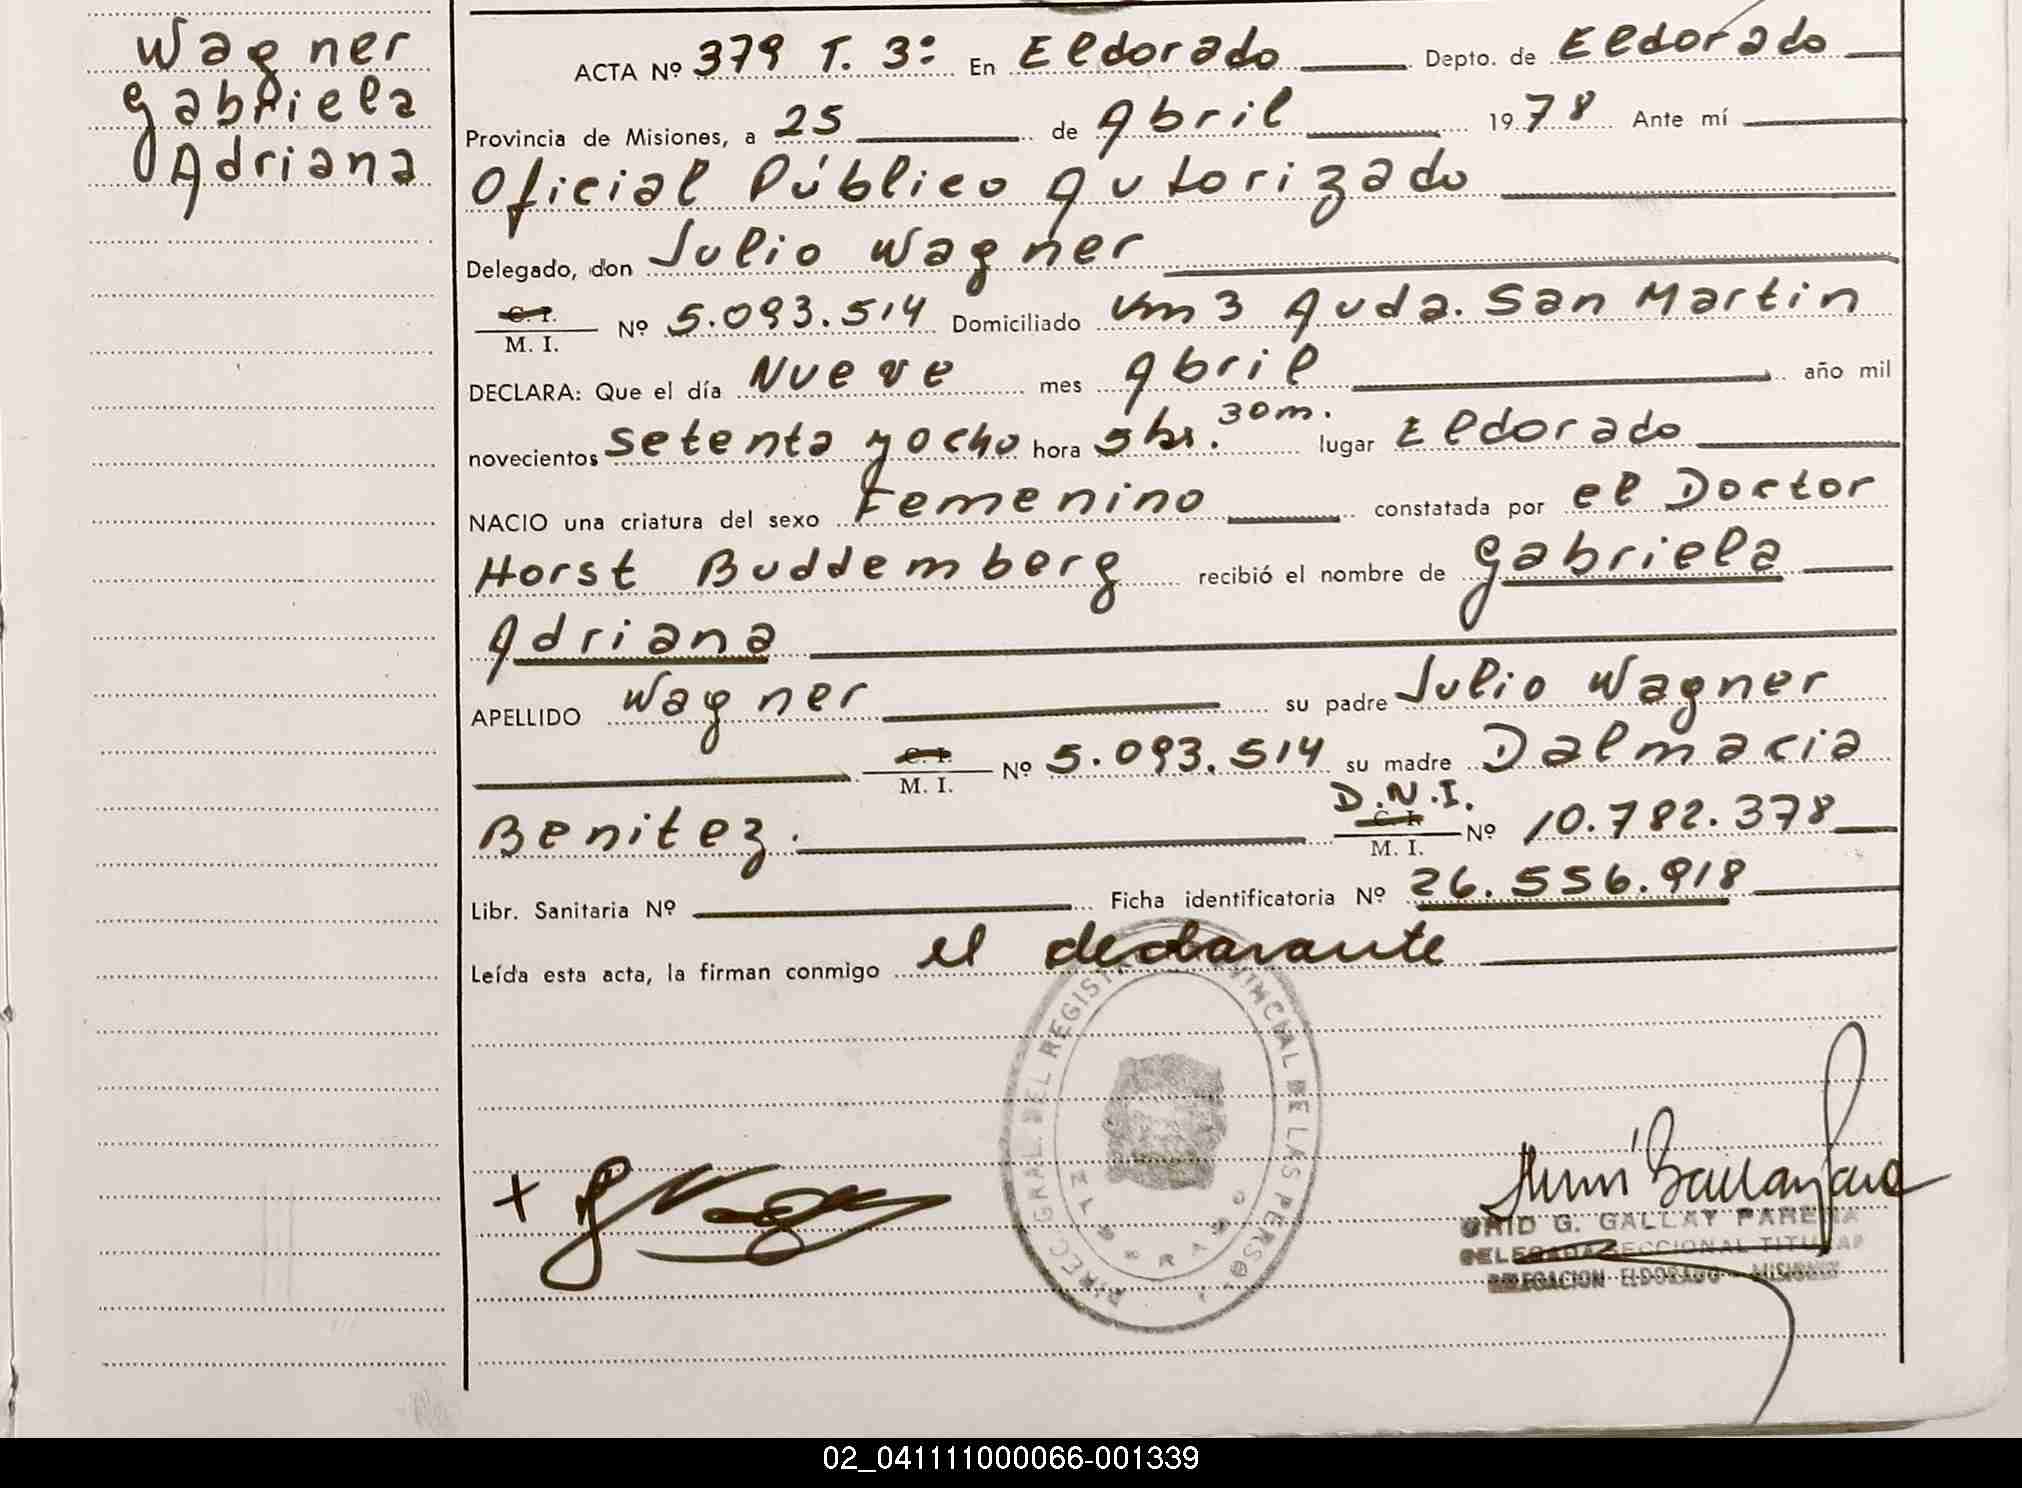 Wagner
Gabriela
Adriana
ACTA Nº 379 T. 3º En Eldorado Depto. de Eldorado
Provincia de Misiones, a 25 de Abril 1978 Ante mí
Oficial Público Autorizado
Delegado, don Julio Wagner
C. I.
M. I. Nº 5.093.514 Domiciliado Km 3 Avda. San Martin
DECLARA: Que el día Nueve mes Abril año mil
novecientos setenta y ocho hora 5 hs. 30 m. lugar Eldorado
NACIO una criatura del sexo Femenino constatada por el Doctor
Horst Buddemberg recibió el nombre de Gabriela
Adriana
APELLIDO Wagner su padre Julio Wagner
C. I.
M. I. Nº 5.093.514 su madre Dalmacia
D.N.I.
Benitez. C. I. Nº 10.782.378
M. I.
Libr. Sanitaria Nº Ficha identificatoria Nº 26.556.918
Leída esta acta, la firman conmigo el declarante
DIREC. GRAL. DEL REGISTRO PROVINCIAL DE LAS PERSO.
ELDORADO
G. GALLAY PARERA
DELEGADA SECCIONAL TITULAR
DELEGACION ELDORADO - MISIONES
02_041111000066-001339